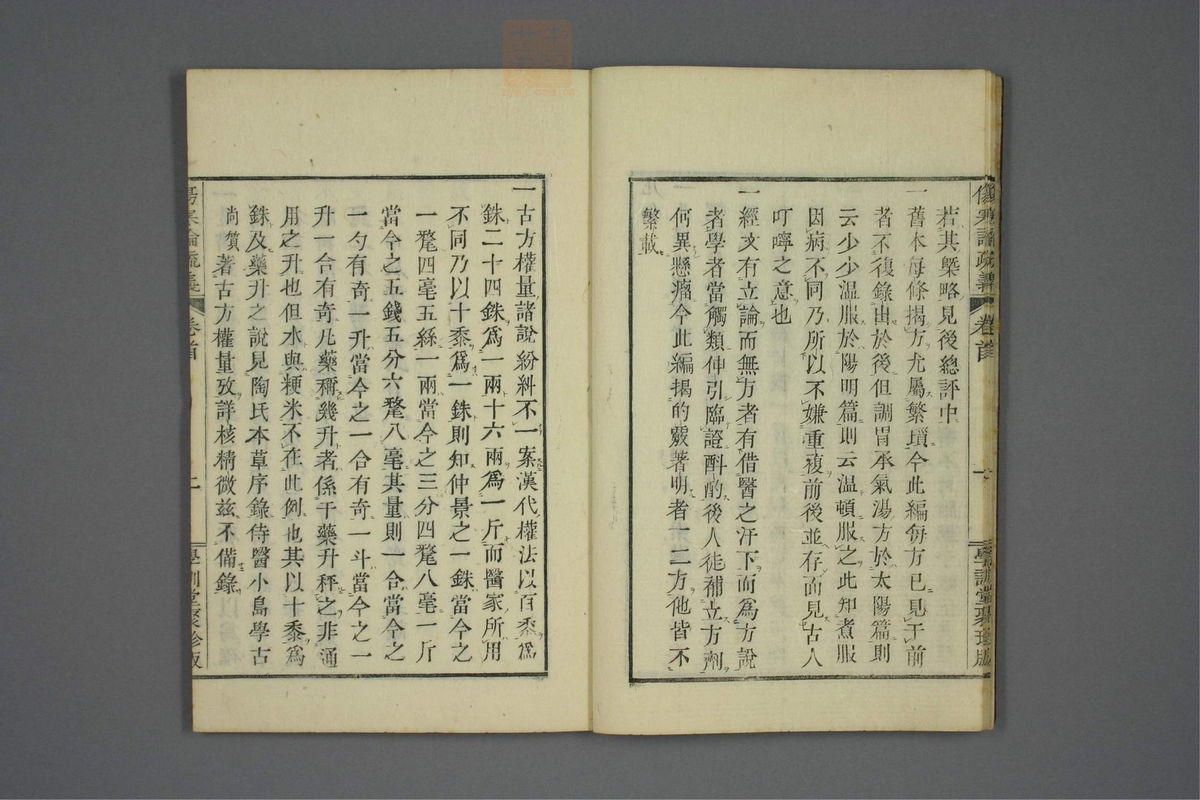 傷寒論疏義
卷首
學訓堂聚珍版
若其槩略見後總評中
一舊本每條揭方尤屬繁瑣今此編每方已見于前
者不復錄出於後但調胃承氣湯方於太陽篇則
云少少温服於陽明篇則云温頓服之此知煮服
因病不同乃所以不嫌重複前後並存而見古人
叮嚀之意也
一經文有立論而無方者有借醫之汗下而爲方說
者學者當觸類伸引臨證斟酌後人徒補立方劑
何異懸瘤今此編揭的覈著明者一二方他皆不
繁載
一古方權量諸說紛糾不一案漢代權法以百黍爲
銖二十四銖爲一兩十六兩爲一斤而醫家所用
不同乃以十黍爲一銖則知仲景之一銖當今之
一釐四毫五絲一兩當今之三分四釐八毫一斤
當今之五錢五分六釐八毫其量則一合當今之
一勺有奇一升當今之一合有奇一斗當今之一
升一合有奇凡藥稱幾升者係于藥升秤之非通
用之升也但水與粳米不在此例也其以十黍爲
銖及藥升之說見陶氏本草序錄侍醫小島學古
尚質著古方權量攷詳核精微玆不備錄
傷寒論疏義
卷首
二
學訓堂聚珍版